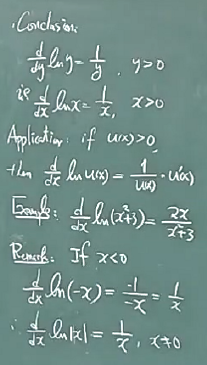 · Conclusion:
d/dy ln y = 1/y, y>0
i.e. d/dx ln x = 1/x, x>0
Application: if u(x)>0,
then d/dx ln u(x) = 1/u(x) · u'(x)
Example: d/dx ln(x²+3) = 2x/x²+3
Remark: If x<0
d/dx ln(-x) = -1/-x = 1/x
∴ d/dx ln|x| = 1/x, x≠0